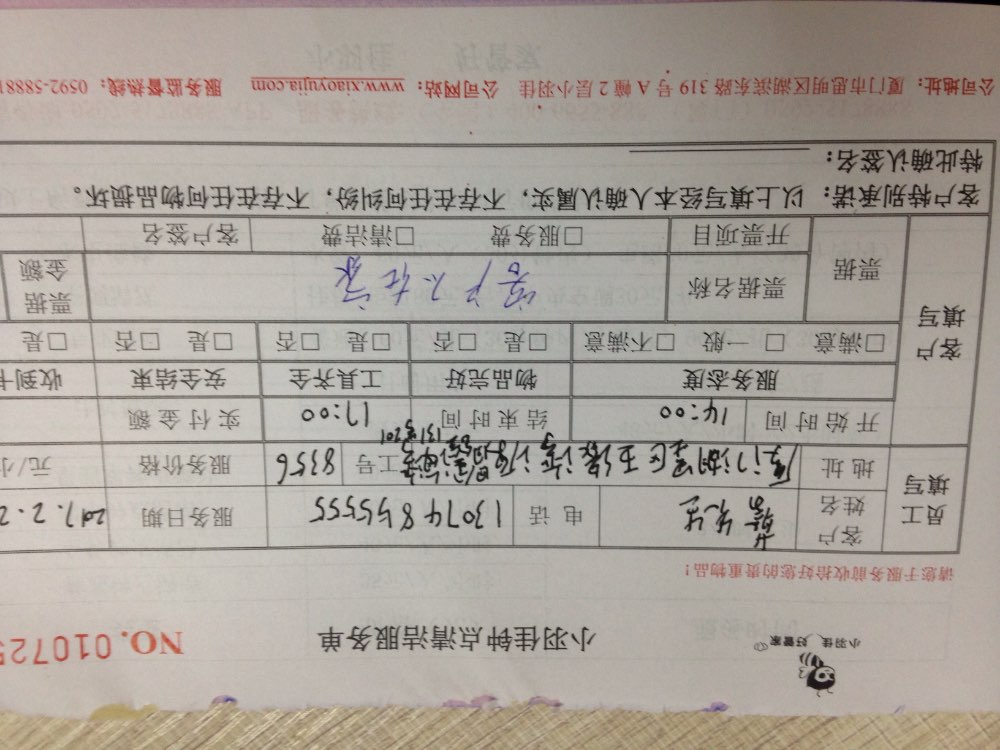 小羽佳 好管家
小羽佳钟点清洁服务单
NO. 010725
请您于服务前收拾好您的贵重物品！
员工填写
客户姓名 先生 电话 13074855555 服务日期 2017.2.2
地址 厦门湖里区 131号201 工号 8356 服务价格 元/小
客户填写
开始时间 14:00 结束时间 17:00 实付金额
服务态度 物品完好 工具齐全 安全结束 收到卡
□满意 □一般 □不满意 □是 □否 □是 □否 □是 □否 □是
票据 票据名称 客户不在家 票据金额
开票项目 □服务费 □清洁费 客户签名
客户特别承诺：以上填写经本人确认属实，不存在任何纠纷，不存在任何物品损坏。
特此确认签名：
公司地址：厦门市思明区湖滨东路 319 号 A 幢 2 层小羽佳 公司网站：www.xiaoyujia.com 服务监督热线：0592-58881